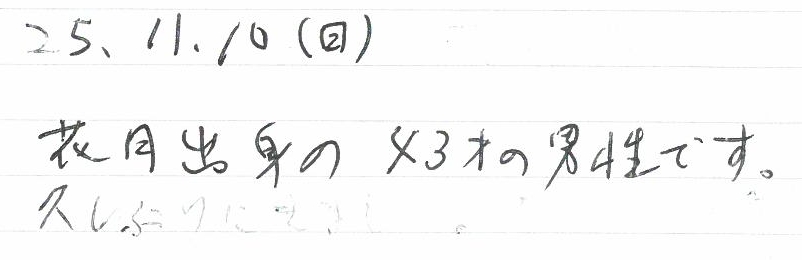 25、11.10(日)
花月出身の43才の男性です。
久しぶりに